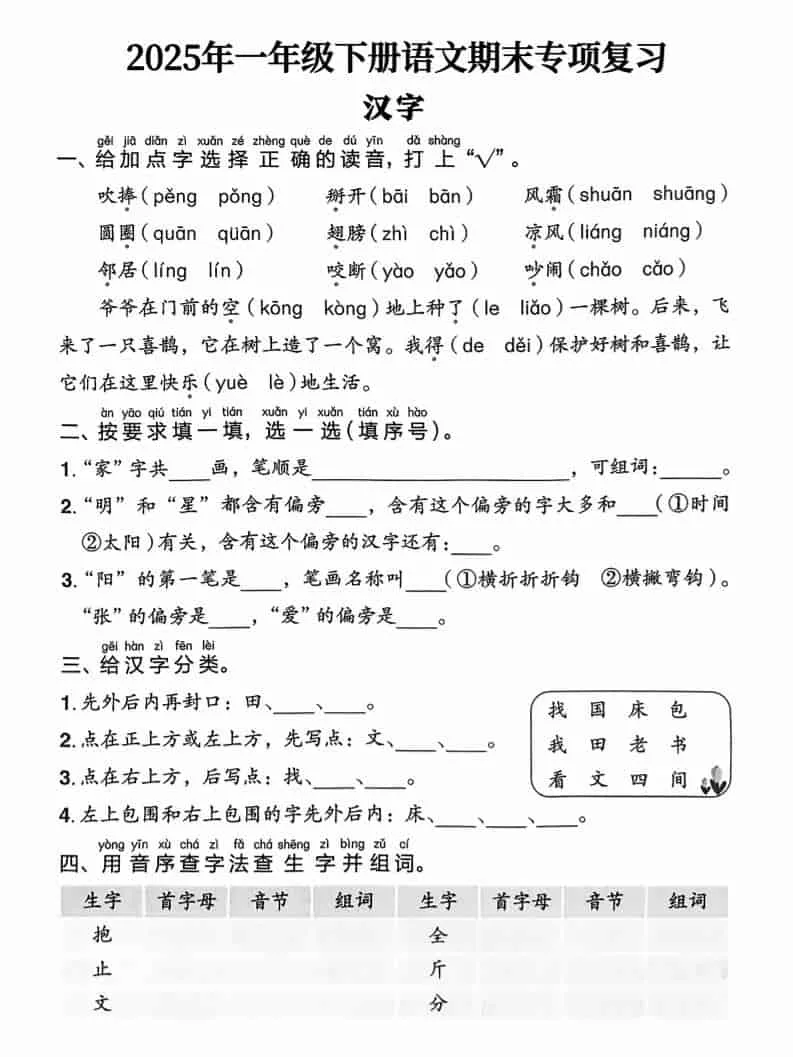 2025年一年级下册语文期末专项复习
汉字
gěi jiā diǎn zì xuǎn zé zhèng què de dú yīn dǎ shàng
一、给加点字选择正确的读音，打上“√”。
吹捧(pěng pǒng) 掰开(bāi bān) 风霜(shuān shuāng)
圆圈(quān qüān) 翅膀(zhì chì) 凉风(liáng niáng)
邻居(líng lín) 咬断(yào yǎo) 吵闹(chǎo cǎo)
爷爷在门前的空(kōng kòng)地上种了(le liǎo)一棵树。后来，飞
来了一只喜鹊，它在树上造了一个窝。我得(de děi)保护好树和喜鹊，让
它们在这里快乐(yuè lè)地生活。
àn yāo qiú tián yi tián xuǎn yi xuǎn tián xù hào
二、按要求填一填，选一选(填序号)。
1.“家”字共____画，笔顺是____________________，可组词：_____。
2.“明”和“星”都含有偏旁____，含有这个偏旁的字大多和____(①时间
②太阳)有关，含有这个偏旁的汉字还有：____。
3.“阳”的第一笔是____，笔画名称叫____(①横折折折钩 ②横撇弯钩)。
“张”的偏旁是____，“爱”的偏旁是____。
gěi hàn zì fēn lèi
三、给汉字分类。
1.先外后内再封口：田、____、____。
2.点在正上方或左上方，先写点：文、____、____。
3.点在右上方，后写点：找、____、____。
4.左上包围和右上包围的字先外后内：床、____、____、____。
找 国 床 包
我 田 老 书
看 文 四 间
yòng yīn xù chá zì fǎ chá shēng zì bìng zǔ cí
四、用音序查字法查生字并组词。
生字 首字母 音节 组词 生字 首字母 音节 组词
抱 全
止 斤
文 分